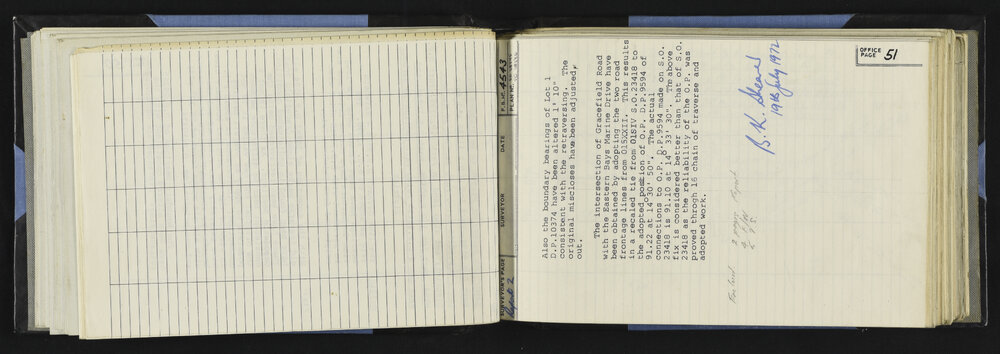 OFFICE
PAGE 51
F.B. No. 4543
DATE
SURVEYOR
SURVEYOR'S PAGE
Report 2
Also the boundary bearings of Lot 1
D.P.10374 have been altered 1' 10"
consistent with the retraversing. The
original miscloses have been adjusted,
out.
The intersection of Gracefield Road
with the Eastern Bays Marine Drive have
been obtained by adopting the two road
frontage lines from O15XXII. This results
in a recaled tie from O18IV S.O.23418 to
the adopted position of O.P. D.P.9594 of
91.22 at 14°30' 50". The actual
connections to O.P. D.P.9594 made on S.O.
23418 is 91.10 at 14° 33' 30". The above
fix is considered better than that of S.O.
23418 as the reliability of the O.P. was
proved throgh 16 chain of traverse and
adopted work.
B. K. Sheard
19th July 1972
2 pages Report